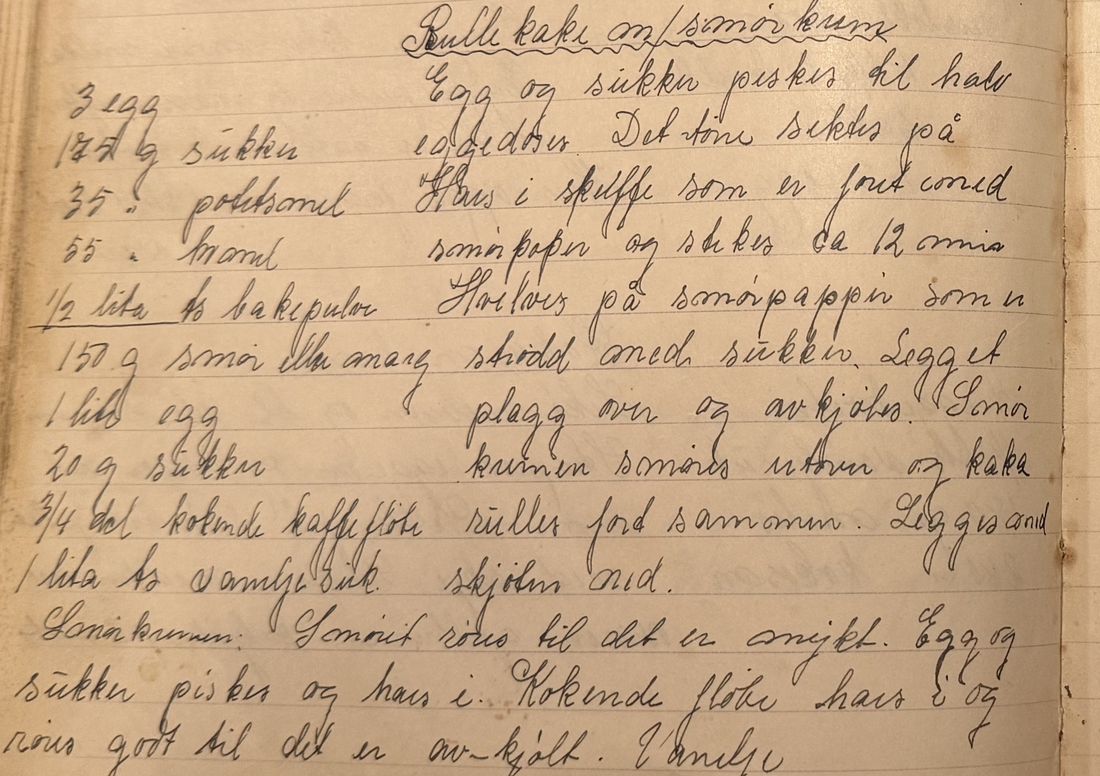 Rullekake m/smørkrem
3 egg
175 g sukker
35 " potetmel
55 " hvmel
1/2 lita ts bakepulve
150 g smør eller marg
1 lite egg
20 g sukker
3/4 del kokende kaffefløte
1 lita ts vaneljesuk.
Egg og sukker piskes til halv
eggedosis. Det tørre siktes på
Haes i skuffe som er foret med
smørpapir og stekes ca 12 min
Hvelves på smørpappir som er
strødd med sukker. Legget
plagg over og avkjøles. Smør
kremen smøres utover og kaka
rulles ford sammen. Legges med
skjøten ned.
Smørkremen: Smørit røres til det er mykt. Egg og
sukker piskes og haes i. Kokende fløte haes i og
røres godt til det er av-kjølt. Vanelje